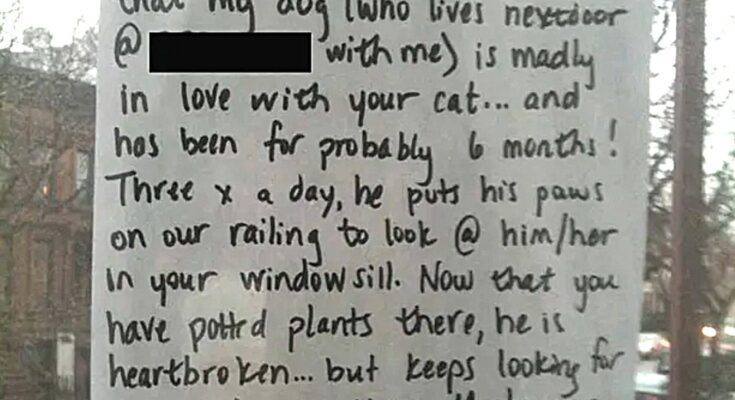 that my dog (who lives nextdoor
@ with me) is madly
in love with your cat... and
has been for probably 6 months!
Three x a day, he puts his paws
on our railing to look @ him/her
in your windowsill. Now that you
have pottrd plants there, he is
heartbroken... but keeps looking for